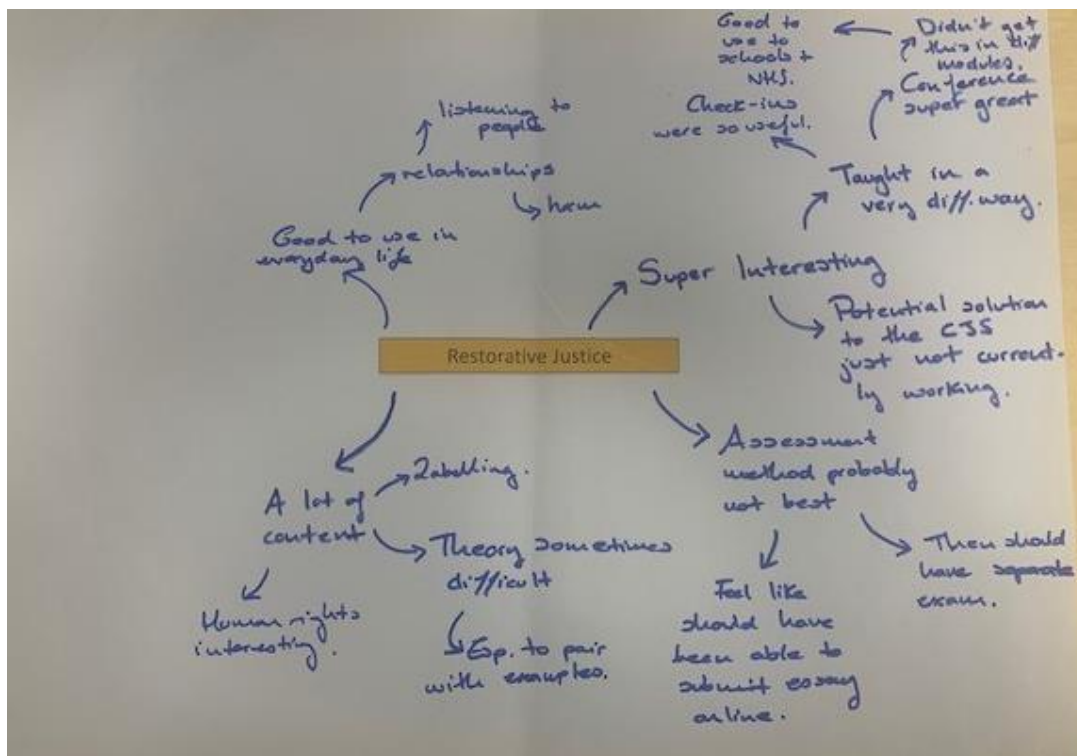 Restorative Justice
Good to use in
everyday life
relationships
listening to
people
harm
Super Interesting
Taught in a
very diff. way.
Check-ins
were so useful.
Conference
super great
Didn't get
this in diff
modules.
Good to
use to
schools +
NHS.
Potential solution
to the CJS
just not current-
ly working.
Assessment
method probably
not best
Feel like
should have
been able to
submit essay
online.
Then should
have separate
exam.
A lot of
content
Labelling.
Theory sometimes
difficult
Esp. to pair
with examples.
Human rights
interesting.